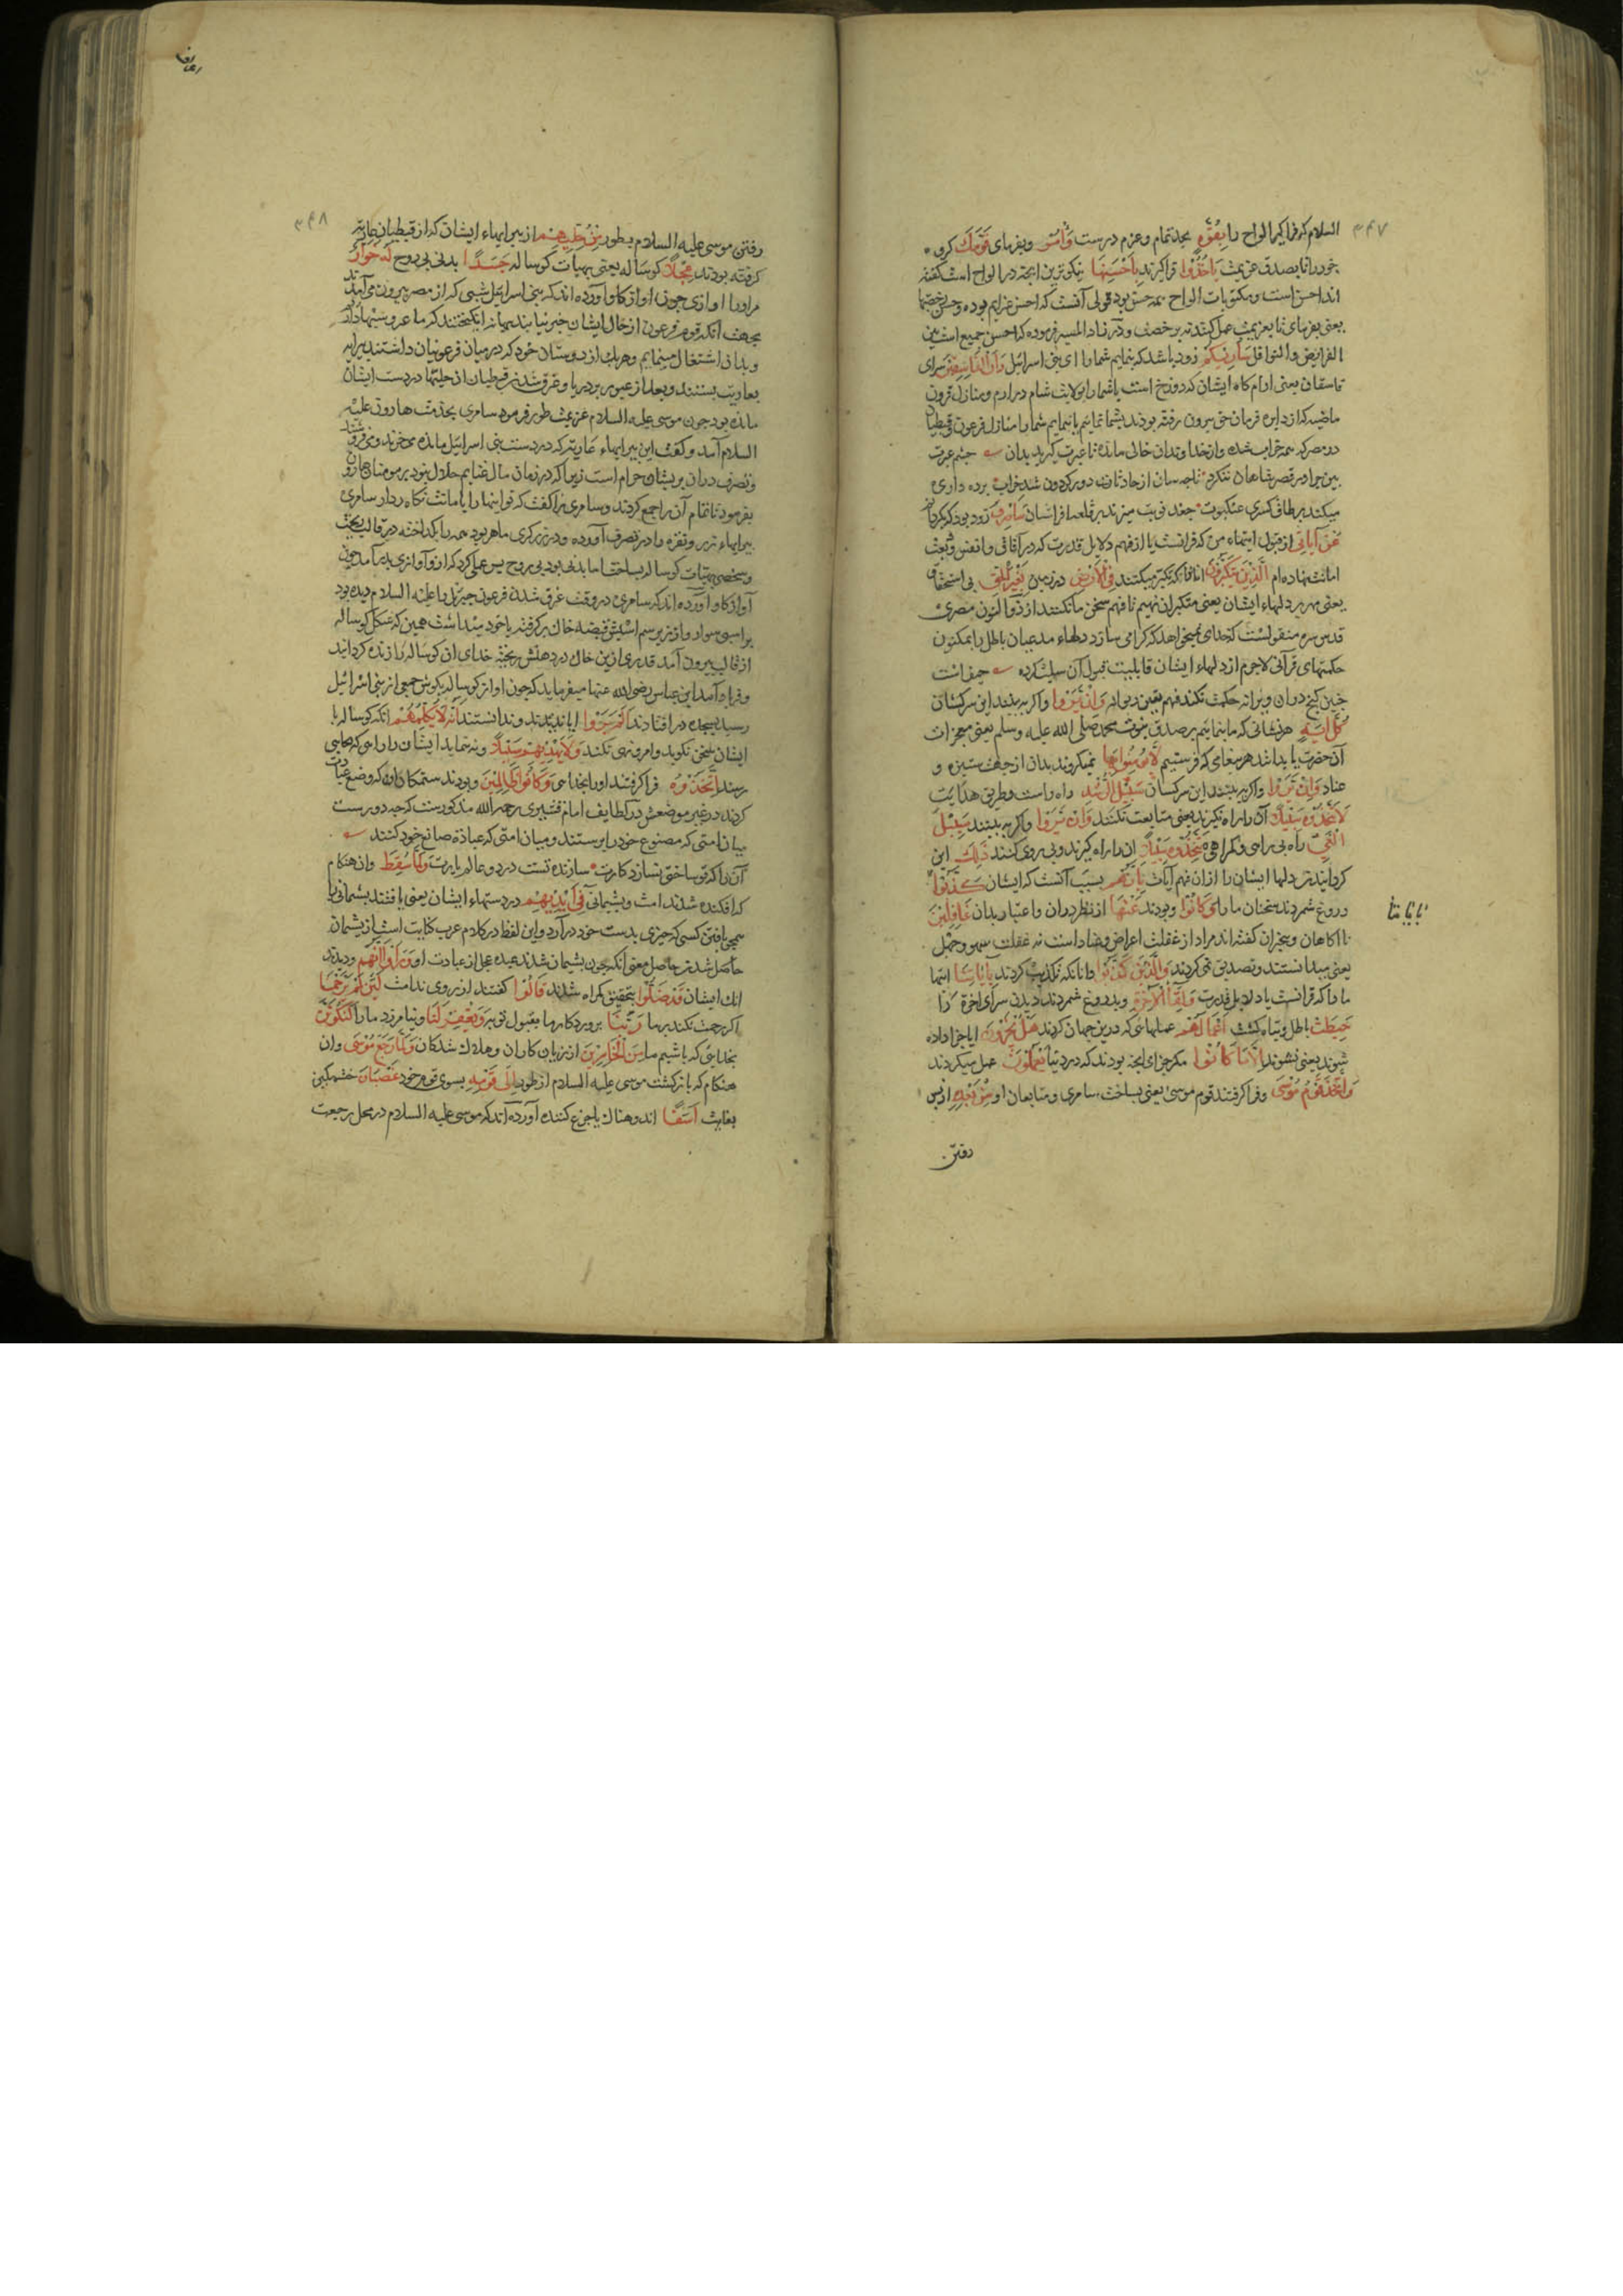 ۳۴۷
السلام که فراگیر الواح را بِقُوَّةٍ بجد تمام و عزم درست وَأْمُرْ و بفرمای قَوْمَكَ گروه
خود را تا بصدق عزیمت يَأْخُذُوا فراگیرند بِأَحْسَنِهَا نیکوترین آنچه در الواح است گفته
اند احسن است و مکتوبات الواح همه حسن بود قولی آنست که احسن عزایم بوده و حسن رخصها
یعنی بفرمای تا بعزیمت عمل کنند نه برخصت و در زاد المسیر فرموده که احسن جمیع است بین
الفرایض و النوافل سَأُرِيكُمْ زود باشد که بنمایم شما را ای بنی اسرائیل دَارَ الْفَاسِقِينَ سرای
فاسقان یعنی آرامگاه ایشان که دوزخ است یا شما را بولایت شام درآرم و منازل قرون
ماضیه که از دایره فرمان حق بیرون رفته بودند بشما نمایم یا بنمایم شما را منازل فرعون و قبطیان
در مصر که همه خراب شده و از خداوندان خالی مانده تا عبرت گیرید بدان چشم عبرت
بین چرا در قصر شاهان ننگرد تا چه سان از حادثات دور گردون شد خراب پرده داری
میکند بر طاق کسری عنکبوت جغد نوبت میزند بر قلعه افراسیاب سَأَصْرِفُ زود بود که بگردانم
عَنْ آيَاتِيَ از قبول آیتهاء من که قرآنست یا از فهم دلایل قدرت که در آفاق و انفس ودیعت
امانت نهاده ام الَّذِينَ يَتَكَبَّرُونَ آنانرا که تکبر میکنند فِي الْأَرْضِ در زمین بِغَيْرِ الْحَقِّ بی استحقاق
یعنی مهر بر دلهاء ایشان یعنی متکبران نهیم تا فهم سخن ما نکنند از ذوالنون مصری
قدس سره منقولست که خدای نمیخواهد که گرامی سازد دلهاء مدعیان باطل را بمکنون
حکمتهای قرآنی لاجرم از دلهاء ایشان قابلیت قبول آن سلب کرده حیف است
چنین گنج در آن ویرانه حکمت نکند فهم یقین دیوانه وَإِنْ يَرَوْا و اگر به بینند این سرکشان
كُلَّ آيَةٍ هر نشانی که ما بنمائیم بر صدق نبوت محمد صلی الله علیه وسلم یعنی معجزات
آن حضرت یا بدانند هر پیغامی که فرستیم لَا يُؤْمِنُوا بِهَا نمیگروند بدان از جهت ستیزه و
عناد وَإِنْ يَرَوْا و اگر به بینند این سرکشان سَبِيلَ الرُّشْدِ راه راست و طریق هدایت
لَا يَتَّخِذُوهُ سَبِيلًا آن را راه نگیرند یعنی متابعت نکنند وَإِنْ يَرَوْا و اگر به بینند سَبِيلَ
الْغَيِّ راه بی راهی و گمراهی يَتَّخِذُوهُ سَبِيلًا آن را راه گیرند و پی روی کنند ذَلِكَ این
گردانیدن دلها ایشان را از آن فهم آیات بِأَنَّهُمْ بسبب آنست که ایشان كَذَّبُوا
بِآيَاتِنَا
دروغ شمردند سخنان ما را وَكَانُوا و بودند عَنْهَا از نظر در آن و اعتبار بدان غَافِلِينَ
نا آگاهان و بیخبران گفته اند مراد از غفلت اعراض و تضاد است نه غفلت سهو و جهل
یعنی میدانستند و تصدیق نمی کردند وَالَّذِينَ كَذَّبُوا و آنانکه تکذیب کردند بِآيَاتِنَا آیتها
ما را که قرآنست یا دلایل قدرت وَلِقَاءِ الْآخِرَةِ و بدروغ شمردند دیدن سرای آخرة را
حَبِطَتْ باطل و تباه گشت أَعْمَالُهُمْ عملهائی که درین جهان کردند هَلْ يُجْزَوْنَ آیا جزا داده
شوند یعنی نشوند إِلَّا مَا كَانُوا مگر جزای آنچه بودند که در دنیا يَعْمَلُونَ عمل میکردند
وَاتَّخَذَ قَوْمُ مُوسَى و فراگرفتند قوم موسی یعنی بساخت سامری و متابعان او مِنْ بَعْدِهِ از پس
رفتن
۳۴۸
رفتن موسی علیه السلام بطور مِنْ حُلِيِّهِمْ از پیرایهاء ایشان که از قبطیان عاریه
گرفته بودند عِجْلًا گوساله یعنی بهیأت گوساله جَسَدًا بدنی بی روح لَهُ خُوَارٌ
مر او را آوازی چون آواز گاو آورده اند که بنی اسرائیل شبی که از مصر بیرون می آمدند
بجهت آنکه قوم فرعون از حال ایشان خبر نیابند بهانه انگیختند که ما عروسیها داریم
و بدان اشتغال مینمایم و هر یک از دوستان خود که در میان فرعونیان داشتند پیرایه
بعاریت بستدند و بعد از عبور بر دریا و غرق شدن قبطیان آن حلیتها در دست ایشان
مانده بود چون موسی علیه السلام عزیمت طور فرمود سامری بخدمت هارون علیه
السلام آمد و گفت این پیرایهاء عاریه که در دست بنی اسرائیل مانده می خرند و می فروشند
و تصرف در آن بریشان حرام است زیرا که در زمان ما مال غنایم حلال نبود بر مومنان هارون
بفرمود تا تمام آن را جمع کردند و سامری را گفت که تو اینها را بامانت نگاه دار سامری
پیرایهاء زر و نقره را در تصرف آورده و در زرگری ماهر بود همه را بگداخته در قالب ریخت
و شخصی بهیأت گوساله بساخت اما بدنی بود بی روح پس عملی کرد که ازو آوازی بدر آمد چون
آواز گاو آورده اند که سامری در وقت غرق شدن فرعون جبرئیل را علیه السلام دیده بود
بر اسبی سوار و از زیر سم اسبش قبضه خاک برگرفته با خود میداشت همین که شکل گوساله
از قالب بیرون آمد قدری ازین خاک در دهنش ریخت خدای آن گوساله را زنده گردانید
و فریاد آمد ابن عباس رضی الله عنهما میفرماید که چون آواز گوساله بگوش جمعی از بنی اسرائیل
رسید بسجده در افتادند أَلَمْ يَرَوْا آیا ندیدند و ندانستند أَنَّهُ لَا يُكَلِّمُهُمْ آنکه گوساله با
ایشان سخن نگوید و امر و نهی نکند وَلَا يَهْدِيهِمْ سَبِيلًا و نه نماید ایشان را راهی که بجایی
رسند اتَّخَذُوهُ فراگرفتند او را بخدایی وَكَانُوا ظَالِمِينَ و بودند ستمکاران که وضع عبادت
کردند در غیر موضعش در لطایف امام قشیری رحمه الله مذکورست که چه دورست
میان امتی که مصنوع خود را پرستند و میان امتی که عبادة صانع خود کنند
آن را که تو ساختی نسازد کارت سازنده تست در دو عالم یارت وَلَمَّا سُقِطَ و آن هنگام
که افکنده شد ندامت و پشیمانی فِي أَيْدِيهِمْ در دستهاء ایشان یعنی یافتند پشیمانی را
همچو یافتن کسی که چیزی بدست خود درآرد و این لفظ در کلام عرب کنایت است از پشیمان
حاصل شدن حاصل معنی آنکه چون پشیمان شدند عبده عجل از عبادت او وَرَأَوْا أَنَّهُمْ و دیدند
آنکه ایشان قَدْ ضَلُّوا بتحقیق گمراه شدند قَالُوا گفتند از روی ندامت لَئِنْ لَمْ يَرْحَمْنَا
اگر رحمت نکند بر ما رَبُّنَا پروردگار ما بقبول توبه وَيَغْفِرْ لَنَا و نیامرزد ما را لَنَكُونَنَّ
بخدایی که باشیم ما مِنَ الْخَاسِرِينَ از زیان کاران و هلاک شدگان وَلَمَّا رَجَعَ مُوسَى و آن
هنگام که بازگشت موسی علیه السلام از طور إِلَى قَوْمِهِ بسوی قوم خود غَضْبَانَ خشمگین
بغایت أَسِفًا اندوهناک یا جزع کننده آورده اند که موسی علیه السلام در محل رجعت